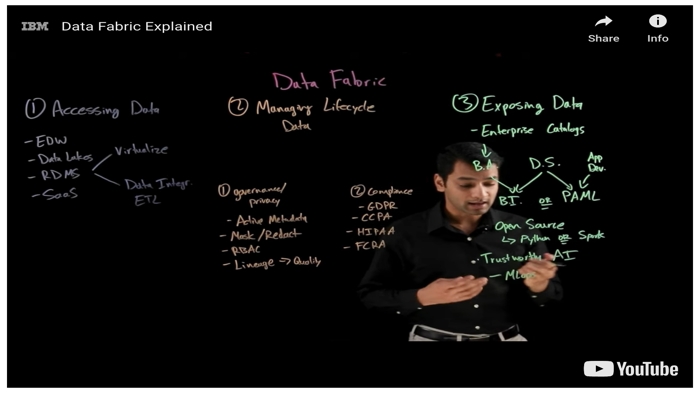 IBM Data Fabric Explained
Share
Info
Data Fabric
① Accessing Data
- EDW
- Data Lakes
- RDMS
- SaaS
Virtualize
Data Integr.
ETL
② Managing Lifecycle
Data
① governance/
privacy
- Active Metadata
- Mask/Redact
- RBAC
- Lineage => Quality
② Compliance
- GDPR
- CCPA
- HIPAA
- FCRA
③ Exposing Data
- Enterprise Catalogs
B.A.
D.S.
App
Dev.
BI. OR PAML
· Open Source
↳ Python OR Spark
· Trustworthy AI
- MLops
YouTube